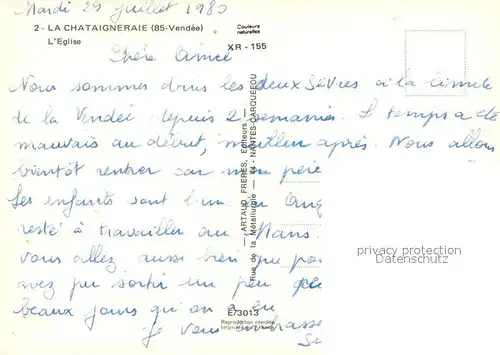 Mardi 29 juillet 1980
2 - LA CHATAIGNERAIE (85-Vendée)
L'Eglise
Couleurs naturelles
XR - 155
Chère Aimée
Nous sommes dans les deux Sèvres à la limite
de la Vendée depuis 2 semaines. Le temps a été
mauvais au début, meilleur après. Nous allons
bientôt rentrer car mon père
Les enfants sont l'un en Ang
resté à travailler au Mans.
vous allez aussi bien que pos
avez pu sortir un peu
beaux jours qu'on a eu
Je vous embrasse
— ARTAUD FRERES, Editeurs —
Rue de la Métallurgie — 44 - NANTES-CARQUEFOU
E/3013
Reproduction interdite
privacy protection
Datenschutz